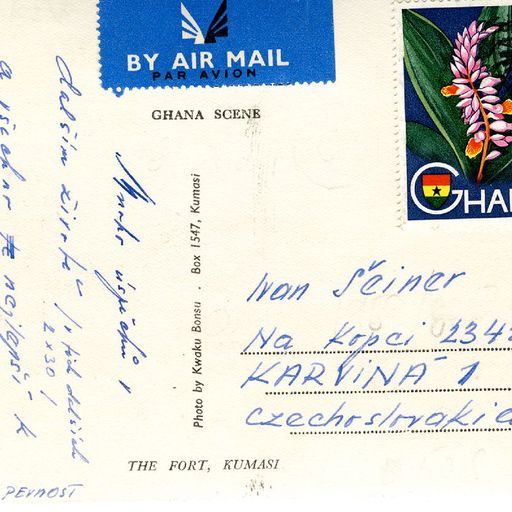 BY AIR MAIL
PAR AVION
GHANA SCENE
GHA
Mnoho úspěchů v
dalším životě
(v těch dalších
2 x 30)
a všechno nejlepší k
Photo by Kwaku Bonsu . Box 1547, Kumasi
Ivan Šeiner
Na Kopci 234
KARVINÁ 1
Czechoslovakia
THE FORT, KUMASI
PEVNOST